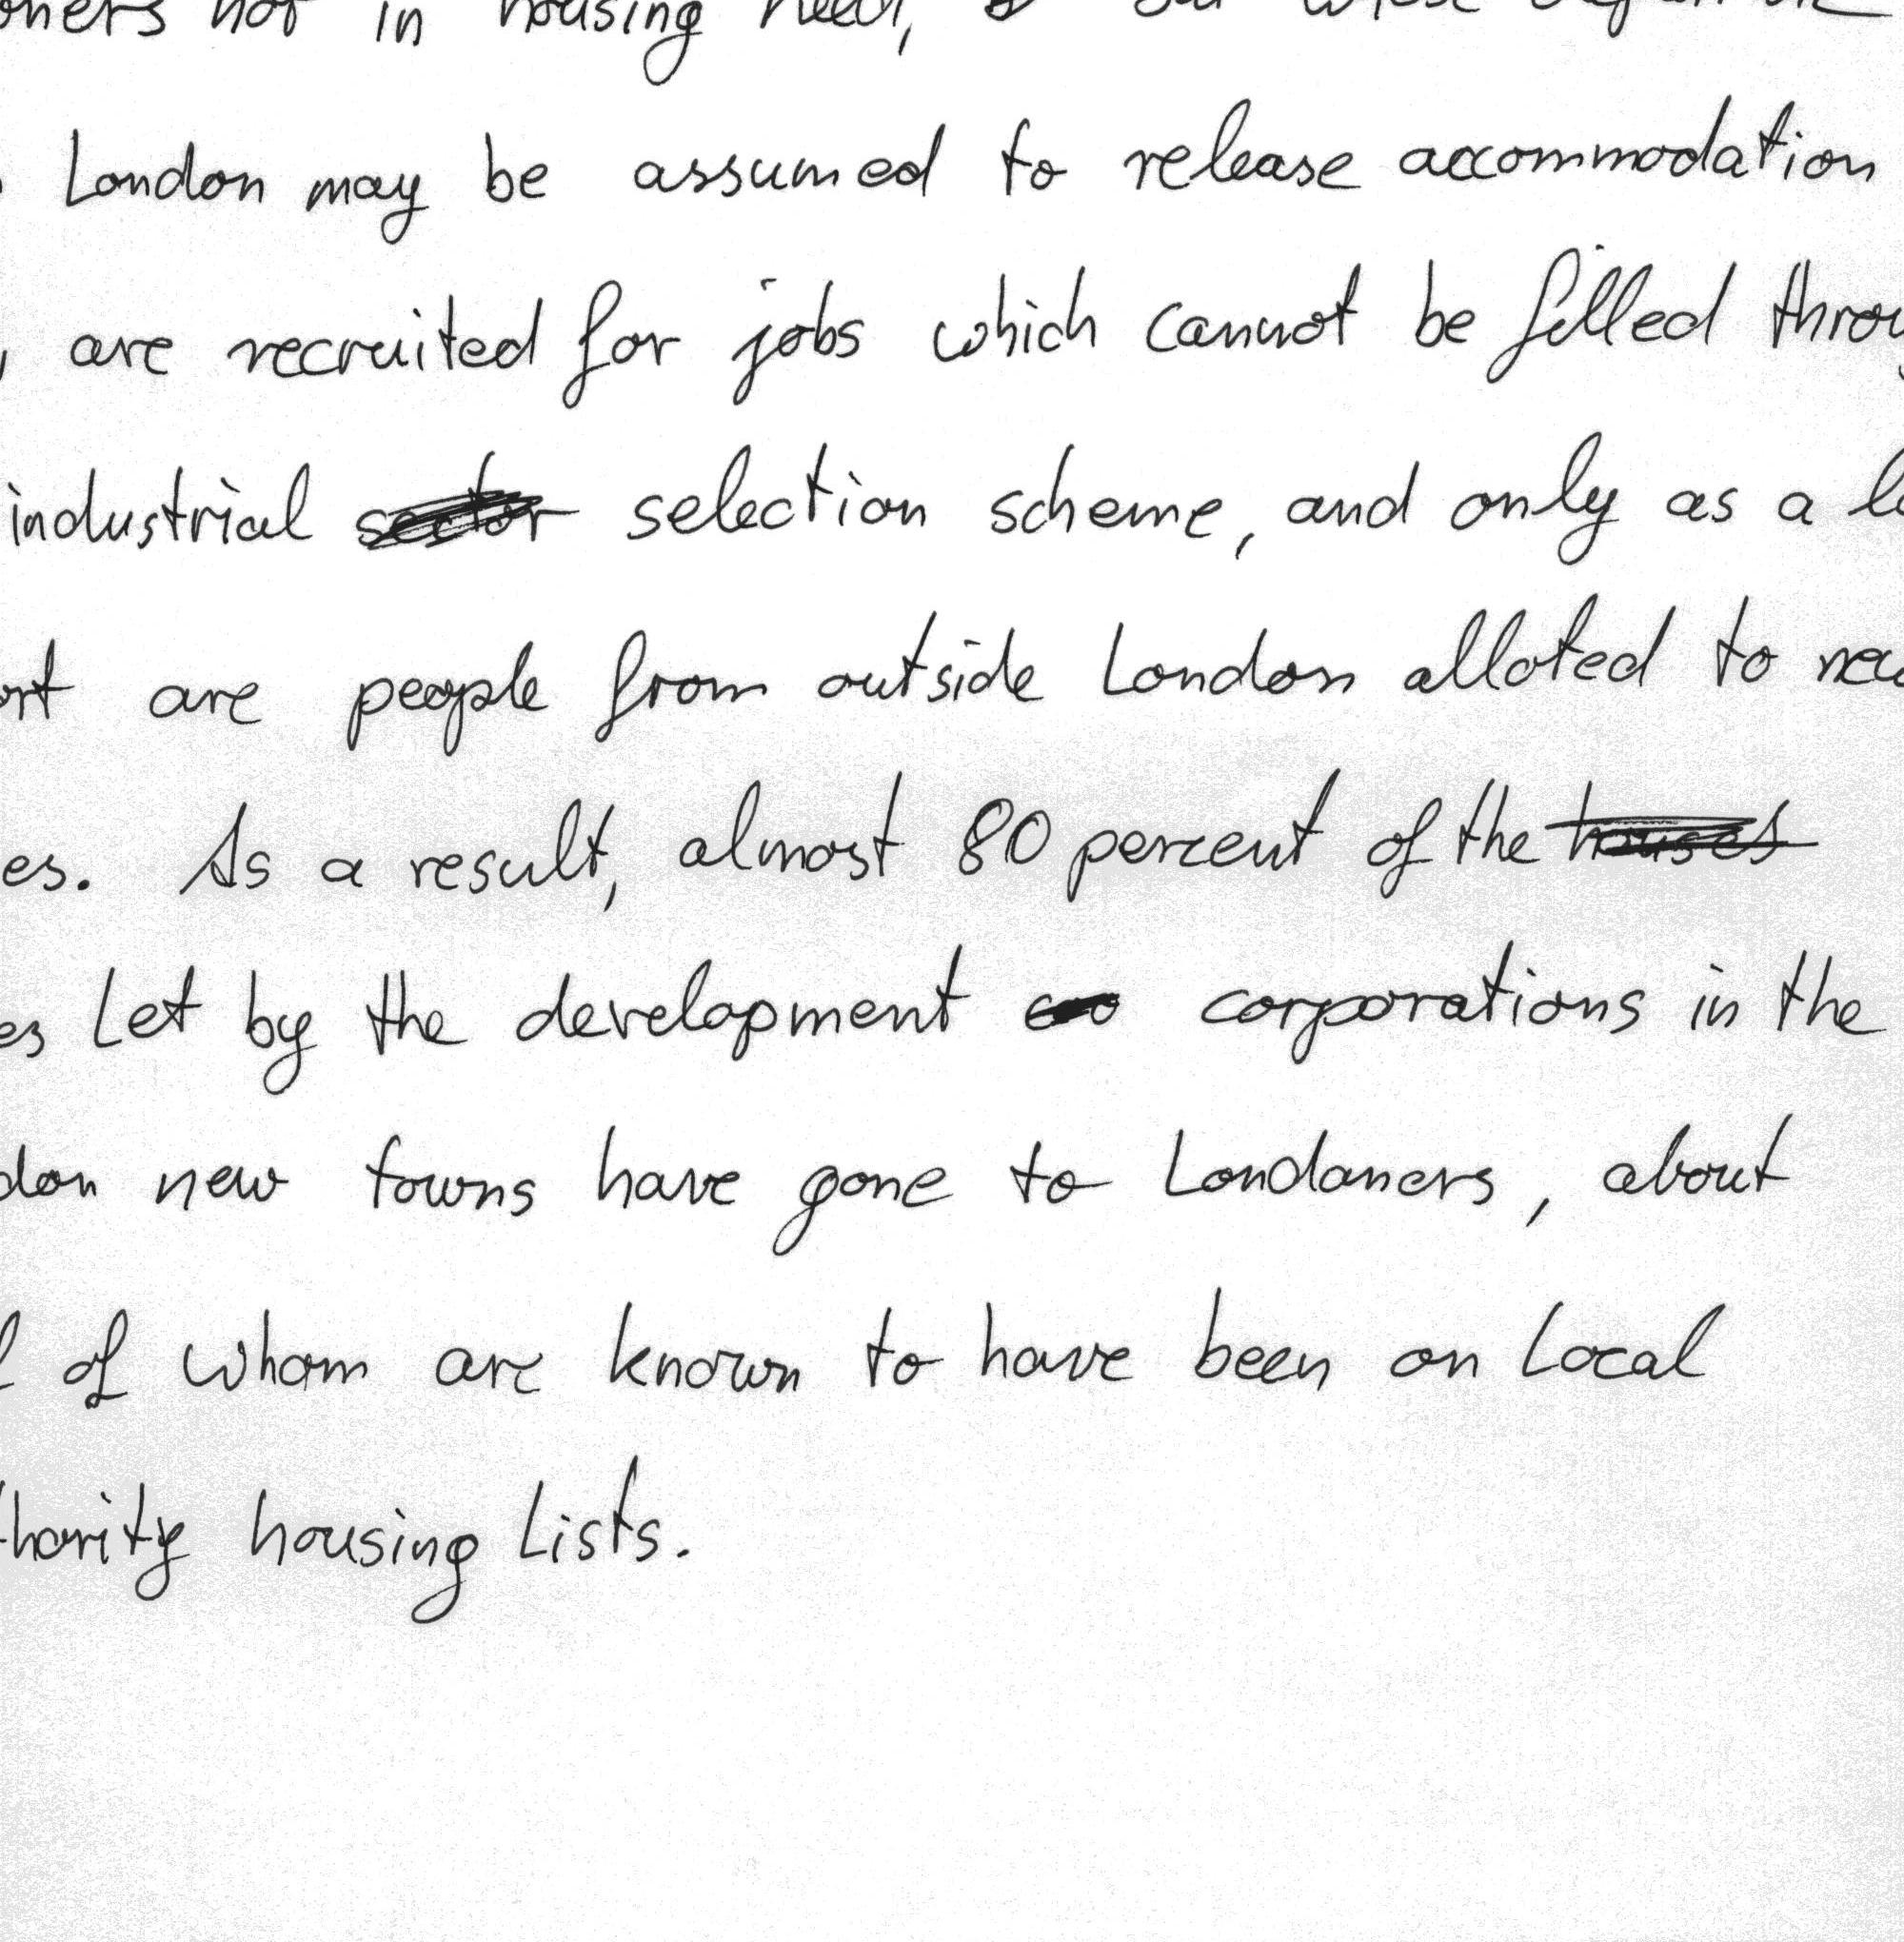 not in housing need, but whose
London may be assumed to release accommodation
, are recruited for jobs which cannot be filled
industrial selection scheme, and only as a
are people from outside London alloted to
As a result, almost 80 percent of the
let by the development corporations in the
new towns have gone to Londoners, about
of whom are known to have been on local
housing lists.